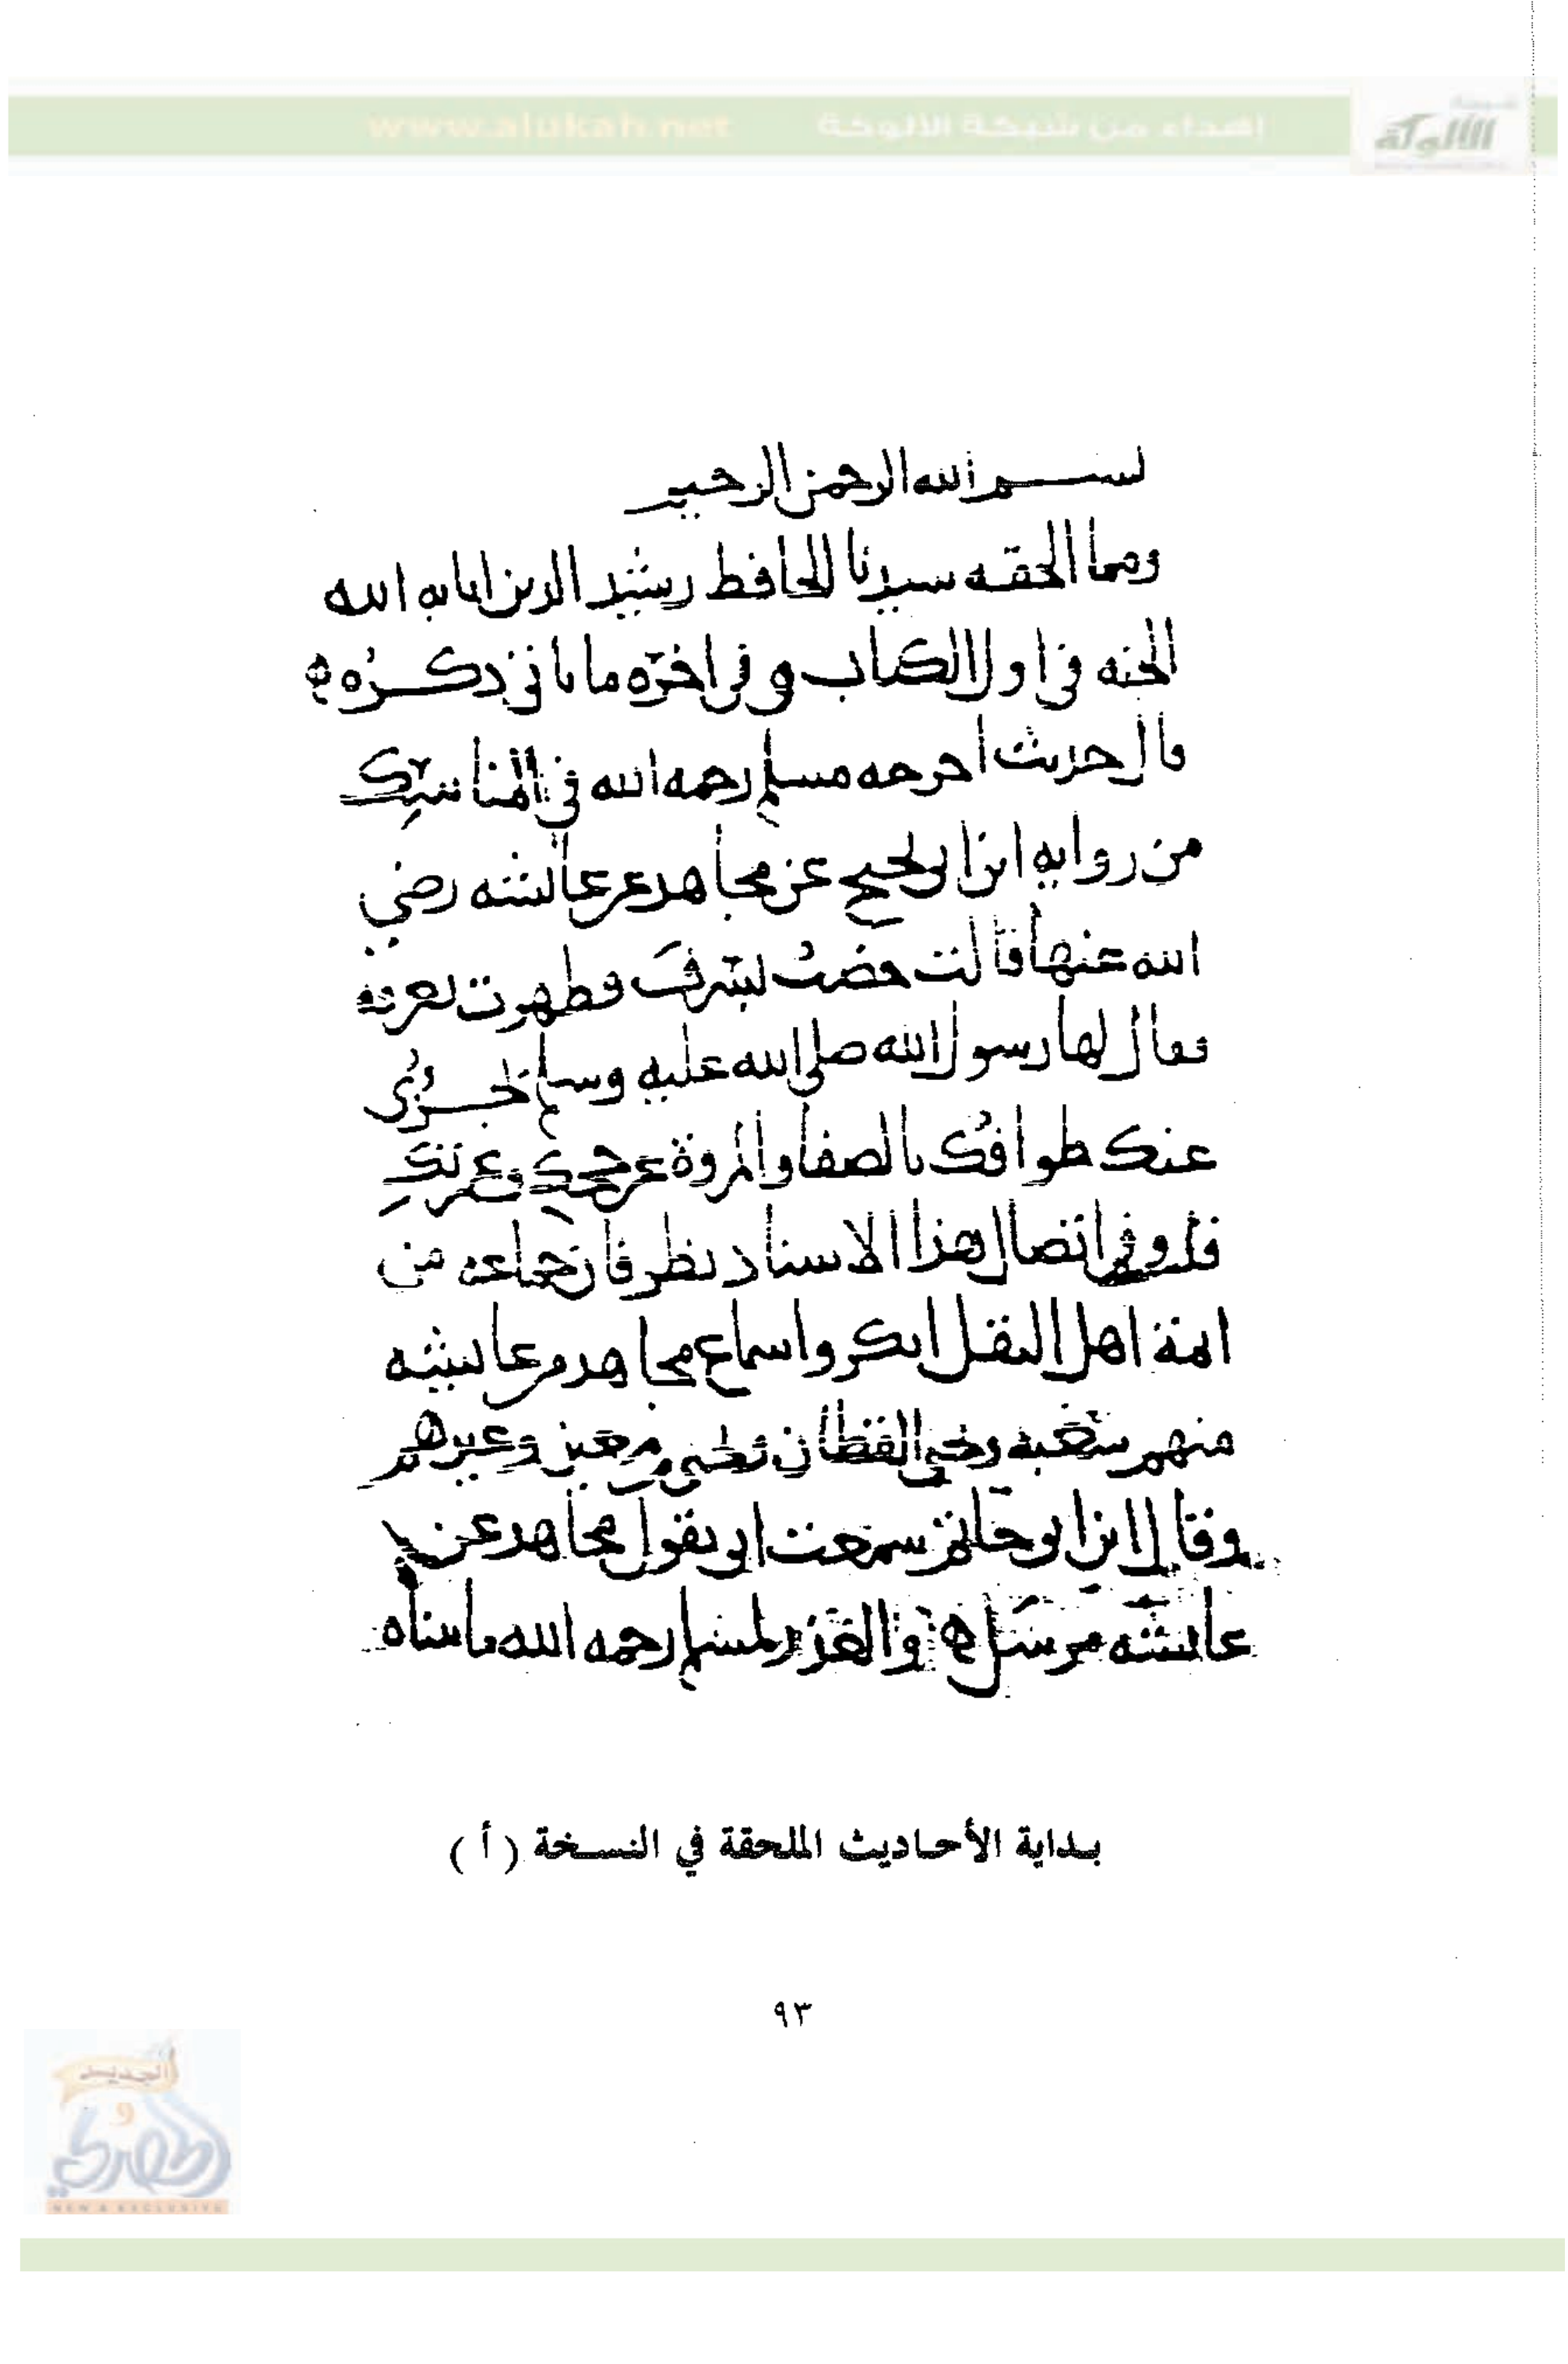 شبكة
الألوكة
اهداء من شبكة الألوكة www.alukah.net
بسم الله الرحمن الرحيم
ومما الحقه سيدنا الحافظ رشيد الدين اثابه الله
الجنه في اول الكتاب وفي اخره ما ياتي ذكره
قال حديث اخرجه مسلم رحمه الله في المناسك
من روايه ابن ابي نجيح عن مجاهد عن عائشه رضي
الله عنها قالت حضت بسرف وطهرت بعرفه
فقال لها رسول الله صلى الله عليه وسلم يجزئ
عنك طوافك بالصفا والمروة عن حجك وعمرتك
قلت وفي اتصال هذا الاسناد نظر فان جماعه من
ائمة اهل النقل انكروا سماع مجاهد من عائشه
منهم شعبة ويحيى القطان ويحيى بن معين وغيرهم
وقال ابن ابي حاتم سمعت ابي يقول مجاهد عن
عائشه مرسل والعذر لمسلم رحمه الله ما بيناه
بداية الأحاديث الملحقة في النسخة ( أ )
٩٣
الجديد
و
الحصري
NEW & EXCLUSIVE